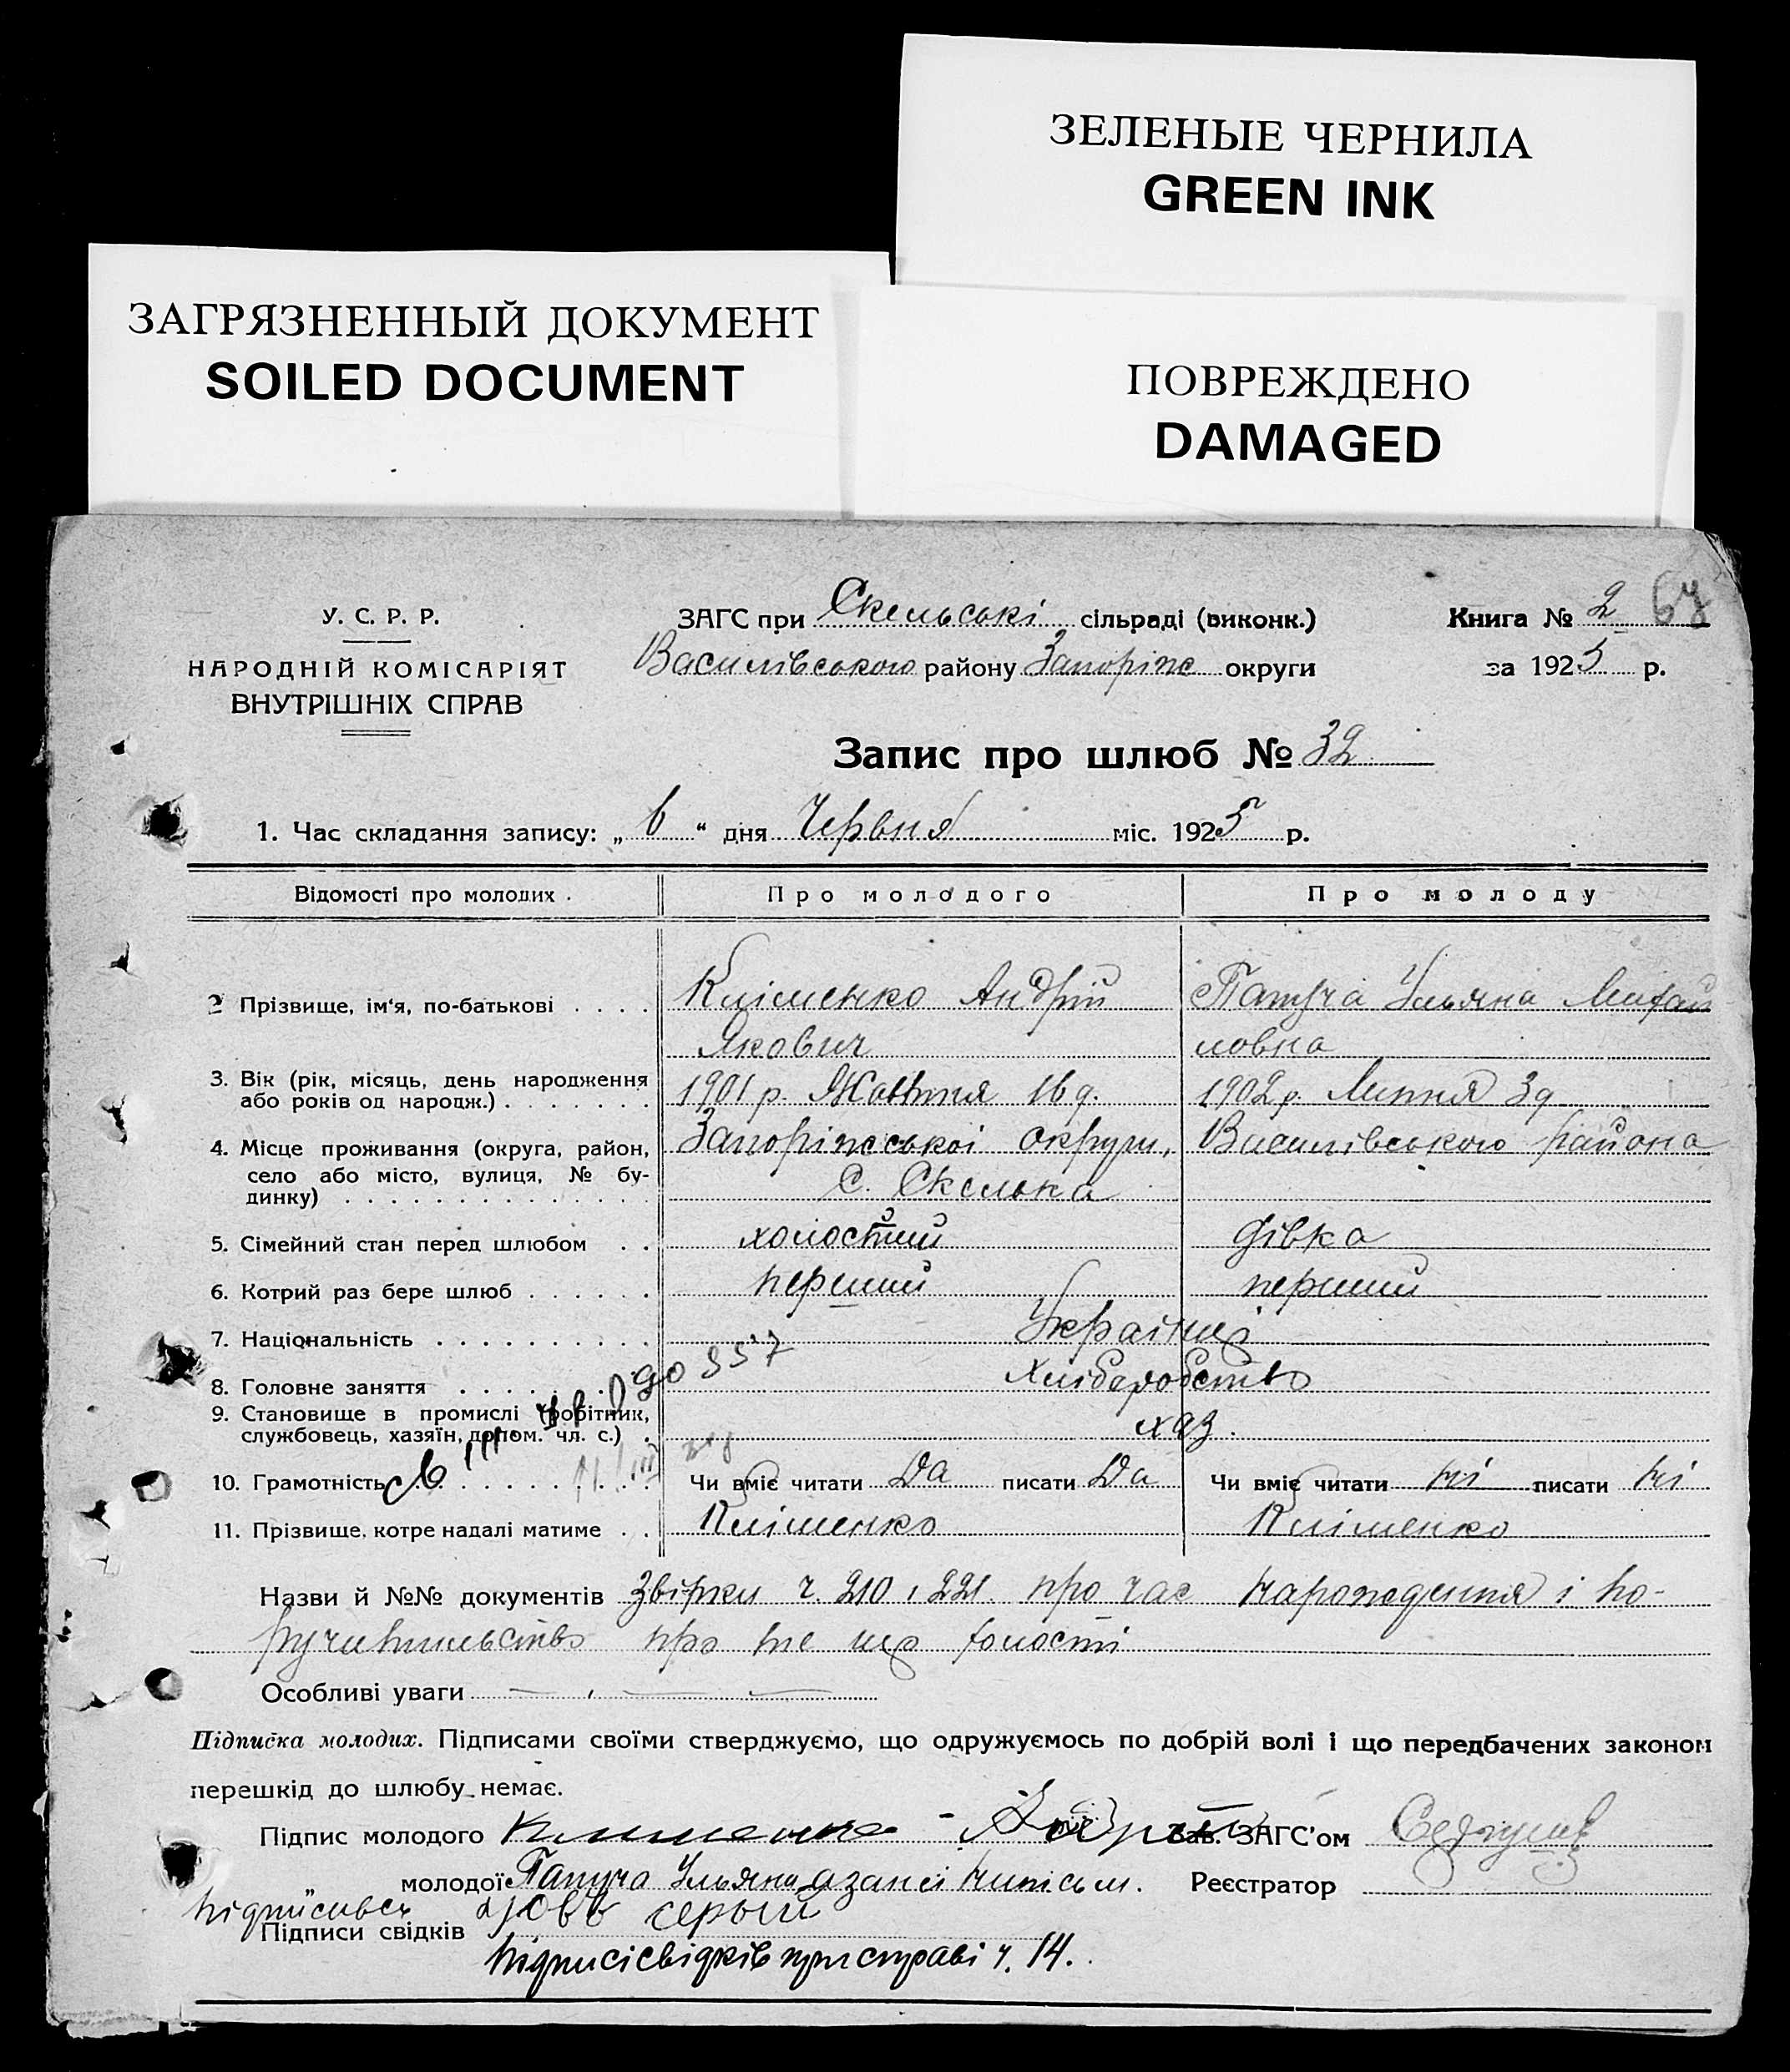 ЗЕЛЕНЫЕ ЧЕРНИЛА
GREEN INK
ЗАГРЯЗНЕННЫЙ ДОКУМЕНТ
SOILED DOCUMENT
ПОВРЕЖДЕНО
DAMAGED
У. С. Р. Р.
НАРОДНІЙ КОМІСАРІЯТ
ВНУТРІШНІХ СПРАВ
ЗАГС при Скельські сільраді (виконк.)
Василівського району Запоріж округи
Книга № 2
за 1925 р.
Запис про шлюб № 32
1. Час складання запису: „ 6 “ дня Червня міс. 1925 р.
Відомості про молодих . Про молодого Про молоду
2 Прізвище, ім‘я, по-батькові . . . . Кліменко Андрій Папуча Ульяна Михай
Якович ловна
3. Вік (рік, місяць, день народження
або років од народж.) . . . . . . . 1901 р. Жовтня 16 д. 1902 р. Липня 3 д
4. Місце проживання (округа, район, Запоріжської округи, Василівського района
село або місто, вулиця, № бу- с. Скелька
динку) . . . . . . . . . . . . . .
5. Сімейний стан перед шлюбом . . холостий дівка
6. Котрий раз бере шлюб . . . . . . перший перший
7. Національність . . . . . . . . . . Українці
8. Головне заняття . . . . . . . . Хліборобство
9. Становище в промислі (робітник,
службовець, хазяїн, допом. чл. с.) . хаз.
10. Грамотність . . . . . . . . . . . Чи вміє читати Да писати Да Чи вміє читати ні писати ні
11. Прізвище, котре надалі матиме . . Кліменко Кліменко
Назви й №№ документів Звірки ч. 210 і 221 про час нарождення і по-
ручительство про те що холості
Особливі уваги
Підписка молодих. Підписами своїми стверджуємо, що одружуємось по добрій волі і що передбачених законом
перешкід до шлюбу немає.
Підпис молодого Клименко Андрій Зав. ЗАГС’ом
молодої Папуча Ульяна а за неї неписьм. Реєстратор
підписався серый
Підписи свідків
підписі свідків при справі ч. 14.